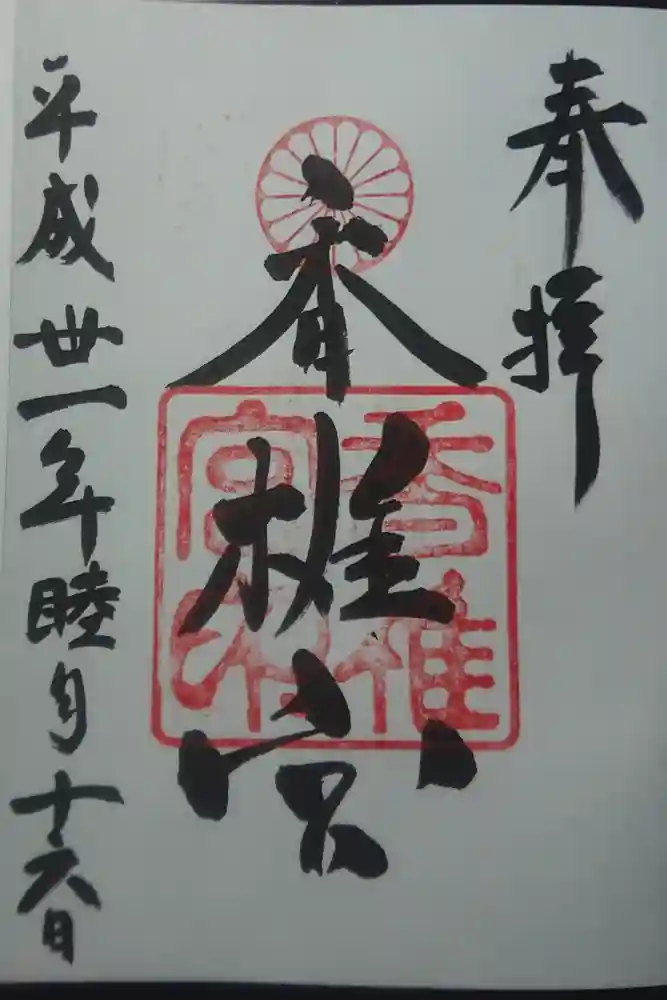 奉拝
香椎宮
香椎宮印
平成卅一年睦月十六日